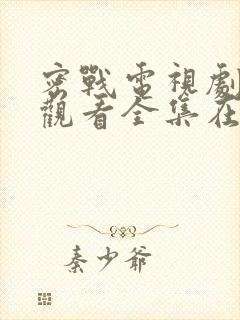 密戰電視劇
觀看全集在
秦少爺